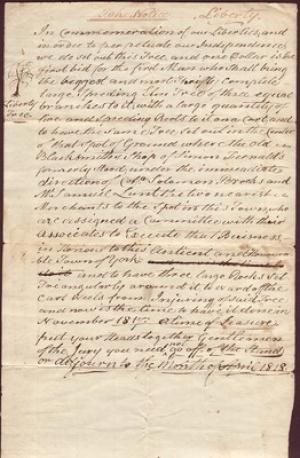 Take Notice Liberty.
In Commemoration of our Liberties, and
in order to perpetuate our Independence
we do set out this Tree and one Dollar is the
first bid for the first Man who shall bring
the biggest and most Thrifty complete
large Spreding Elm Tree of three equal
branches to it, with a large quantity of
live and Spreding Roots to it on a Cart and
to have the same Tree Set out in the Center
of that Spot of Ground where the old
Blacksmiths Shop of Simon Fernald's
formerly Stood, under the immediate
direction of Solomon Brooks and
Mr Samuel Lunt the two nearest
Merchants to the Spot in this Town who
are assigned a Committee with their
Associates to Execute that Business
in Honour to this Antient and Honourable
Town of York
and to have three large Rocks Set
Triangularly around it to ward off the
Cart Wheels from Injuring said Tree
and now is the time to have it done in
November 1817 a time of Leasure
put your Heads together Gentlemen
of the Jury you need not go off the Stand
or adjourn to the Month of April 1818
Liberty
Tree